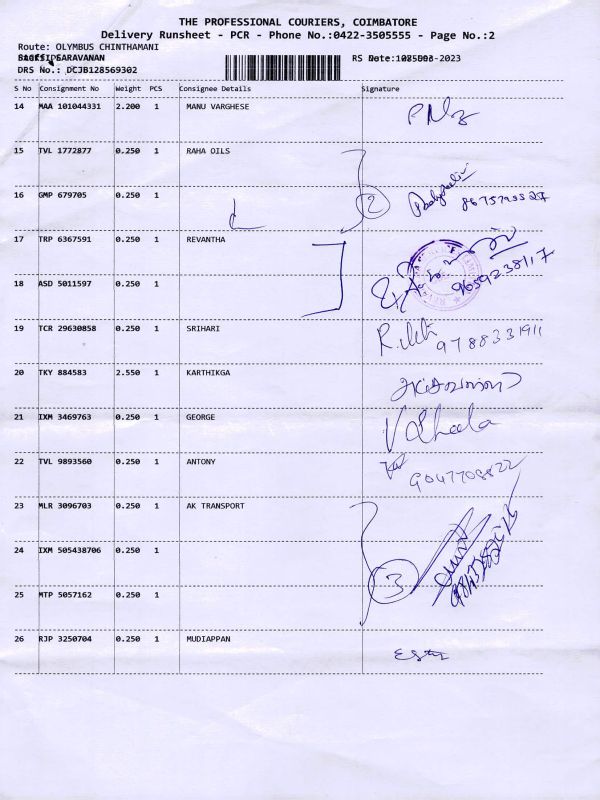 THE PROFESSIONAL COURIERS, COIMBATORE
Delivery Runsheet - PCR - Phone No.:0422-3505555 - Page No.:2
Route: OLYMBUS CHINTHAMANI
SARAVANAN
DRS No.: DCJB128569302
S No Consignment No Weight PCS Consignee Details Signature
14 MAA 101044331 2.200 1 MANU VARGHESE
15 TVL 1772877 0.250 1 RAHA OILS
16 GMP 679705 0.250 1 2
17 TRP 6367591 0.250 1 REVANTHA
9659238117
18 ASD 5011597 0.250 1
19 TCR 29630858 0.250 1 SRIHARI 9788331911
20 TKY 884583 2.550 1 KARTHIKGA
21 IXM 3469763 0.250 1 GEORGE
22 TVL 9893560 0.250 1 ANTONY 9047708822
23 MLR 3096703 0.250 1 AK TRANSPORT
24 IXM 505438706 0.250 1 3
25 MTP 5057162 0.250 1
26 RJP 3250704 0.250 1 MUDIAPPAN